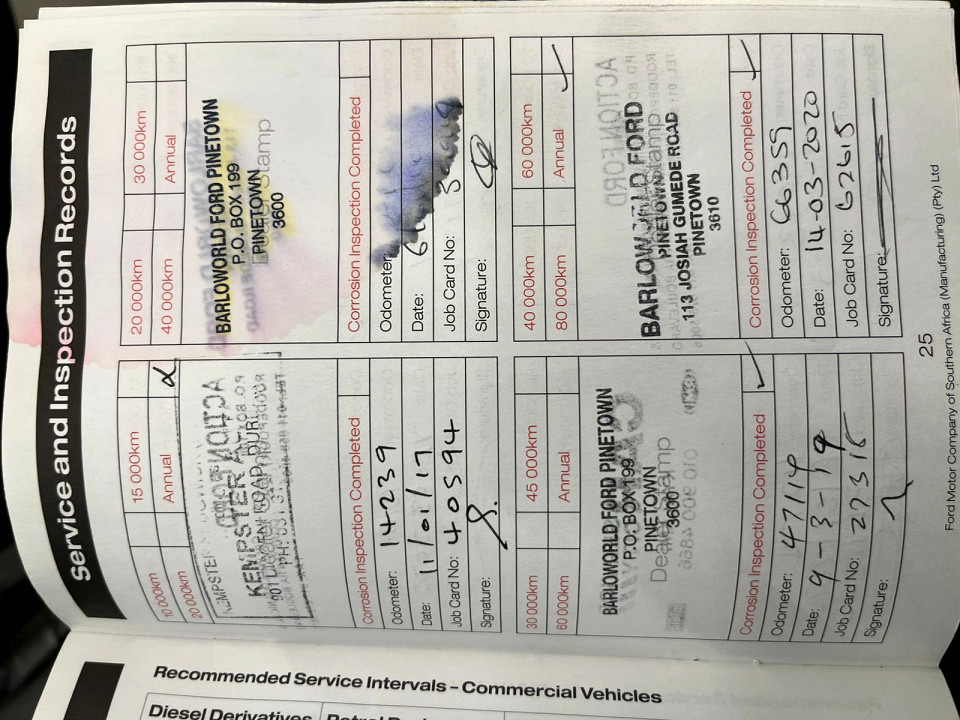 Service and Inspection Records
10 000km
15 000km
20 000km
Annual
KEMPSTER
Corrosion Inspection Completed
Odometer: 14239
Date: 11/01/17
Job Card No: 40594
Signature:
20 000km
30 000km
40 000km
Annual
BARLOWORLD FORD PINETOWN
P.O. BOX 199
PINETOWN
3600
Stamp
Corrosion Inspection Completed
Odometer:
Date:
Job Card No:
Signature:
30 000km
45 000km
60 000km
Annual
BARLOWORLD FORD PINETOWN
P.O. BOX 199
PINETOWN
3600
Dealer Stamp
Corrosion Inspection Completed
Odometer:
Date: 9-3-19
Job Card No:
Signature:
40 000km
60 000km
80 000km
Annual
BARLOWORLD FORD
PINETOWN
113 JOSIAH GUMEDE ROAD
PINETOWN
3610
Corrosion Inspection Completed
Odometer: 663359
Date: 14-03-2020
Job Card No: 62615
Signature:
25
Ford Motor Company of Southern Africa (Manufacturing) (Pty) Ltd
Recommended Service Intervals – Commercial Vehicles
Diesel Derivatives